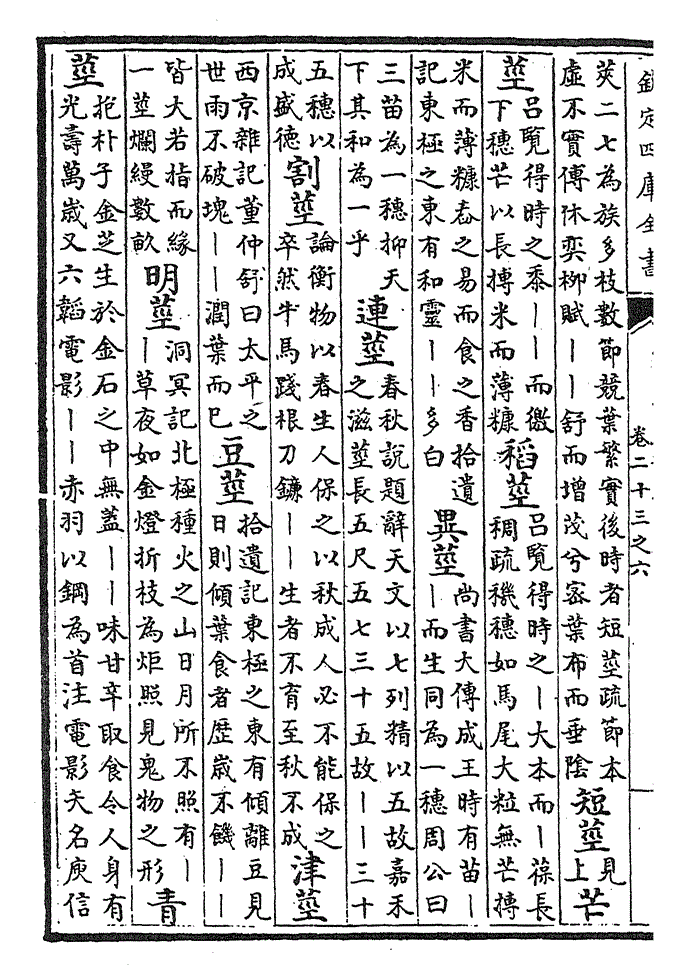 欽定四庫全書
卷二十三之六
莢二七為族多枝數節競葉繁實後時者短莖疏節本
虛不實傅休奕柳賦丨丨舒而增茂兮密葉布而垂陰
短莖
見
上
芒
莖
呂覽得時之黍丨丨而徼
下穗芒以長摶米而薄糠
稻莖
呂覽得時之丨大本而丨葆長
稠疏穖穗如馬尾大粒無芒摶
米而薄糠舂之易而食之香拾遺
記東極之東有和靈丨丨多白
異莖
尚書大傳成王時有苗丨
丨而生同為一穗周公曰
三苗為一穗抑天
下其和為一乎
連莖
春秋説題辭天文以七列精以五故嘉禾
之滋莖長五尺五七三十五故丨丨三十
五穗以
成盛德
割莖
論衡物以春生人保之以秋成人必不能保之
卒然牛馬踐根刀鐮丨丨生者不育至秋不成
津莖
西京雜記董仲舒曰太平之
世雨不破塊丨丨潤葉而已
豆莖
拾遺記東極之東有傾離豆見
日則傾葉食者歴歳不饑丨丨
皆大若指而緣
一莖爛縵數畝
明莖
洞冥記北極種火之山日月所不照有丨
丨草夜如金燈折枝為炬照見鬼物之形
青
莖
抱朴子金芝生於金石之中無蓋丨丨味甘辛取食令人身有
光壽萬歳又六韜電影丨丨赤羽以鋼為首注電影矢名庾信